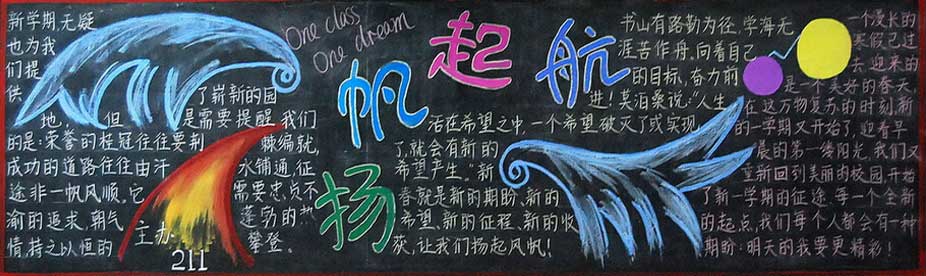 One class
One dream
扬帆起航
新学期,无疑
也为我
们提
供了崭新的园
地,但是需要提醒我们
的是:荣誉的桂冠往往要荆棘编就,
成功的道路往往由汗水铺通,征
途非一帆风顺。它需要忠贞不
渝的追求、朝气蓬勃的热
情、持之以恒的攀登。
主办
211
书山有路勤为径,学海无
涯苦作舟。向着自己
的目标,奋力前
进!莫泊桑说:“人生
活在希望之中,一个希望破灭了或实现
了,就会有新的
希望产生。”新
春就是新的期盼、新的
希望、新的征程、新的收
获,让我们扬起风帆!
一个漫长的
寒假已过
去,迎来的
是一个美好的春天,
在这万物复苏的时刻,新
的一学期又开始了,迎着早
晨的第一缕阳光,我们又
重新回到美丽的校园开始
了新一学期的征途,每一个全新
的起点,我们每个人都会有一种
期盼:明天的我要更精彩!